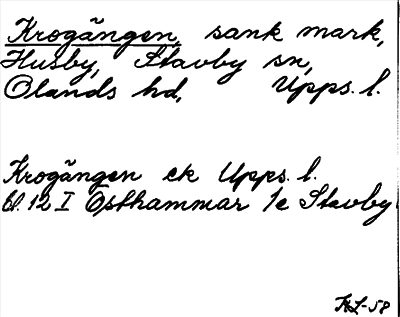 Krogängen, sank mark,
Husby, Stavby sn,
Olands hd, Upps. l.
Krogängen ek Upps. l.
bl. 12 I Östhammar 1e Stavby
KL-58